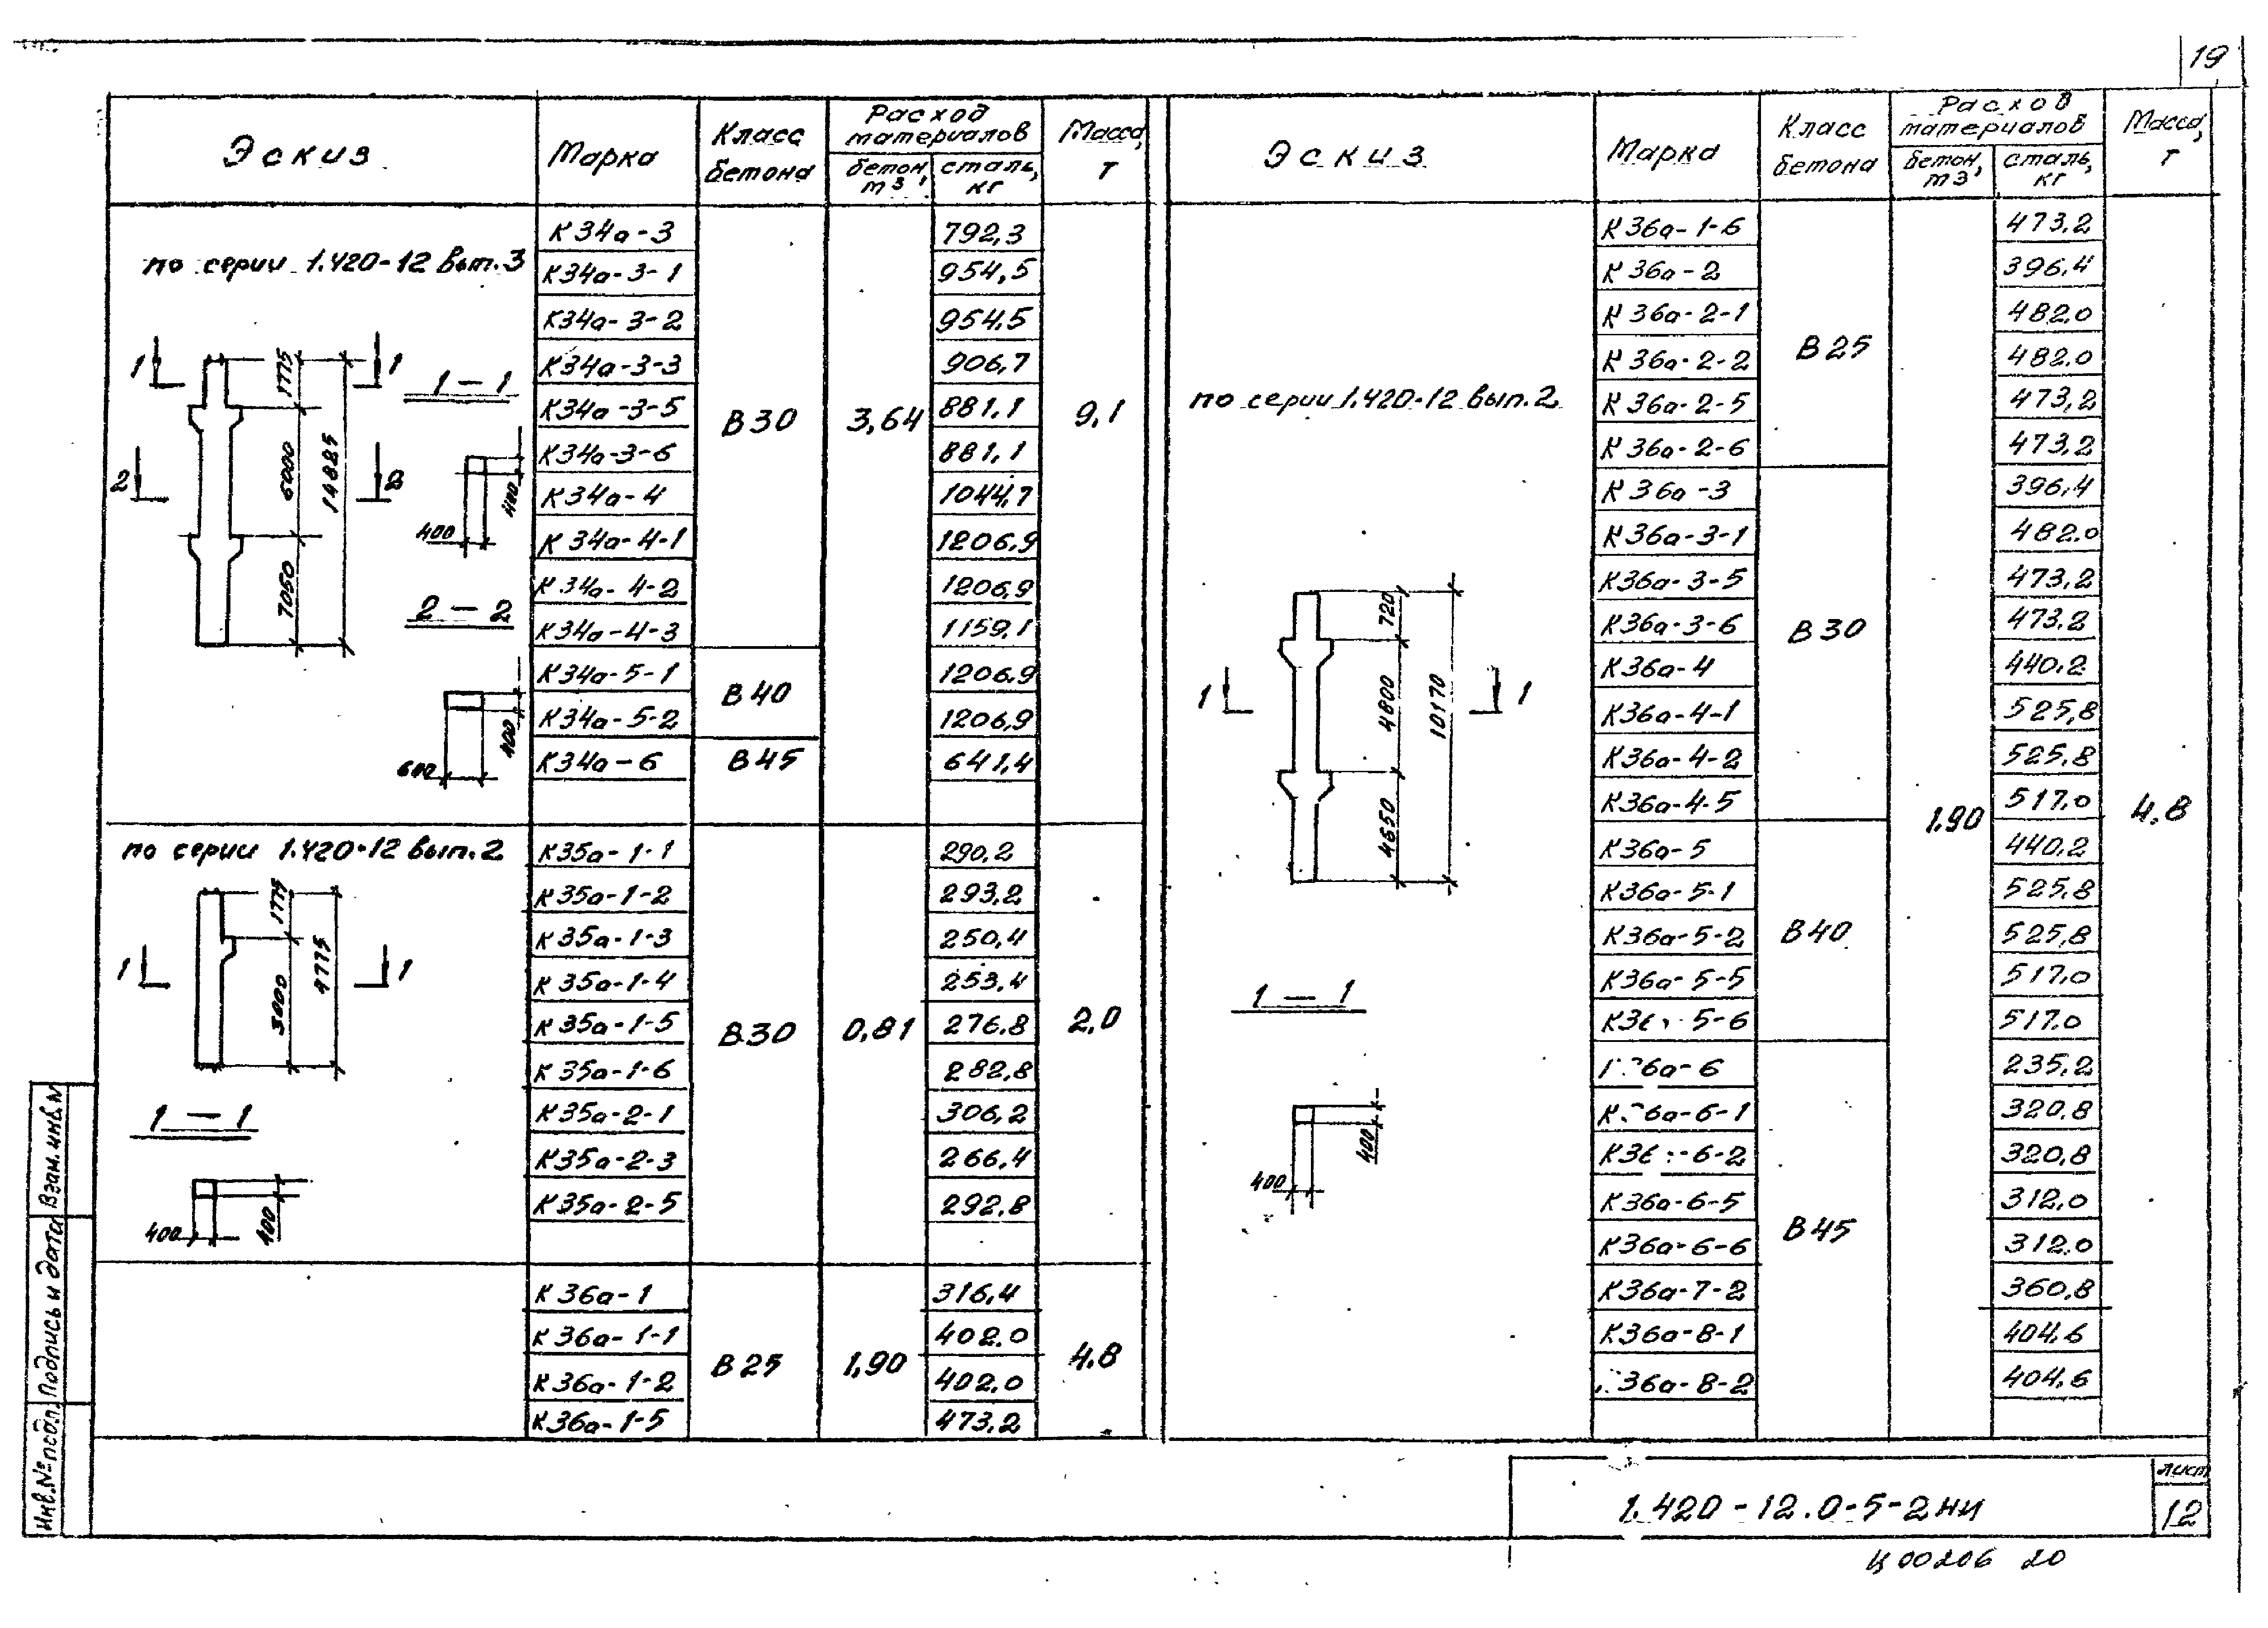 19
Эскиз Марка Класс бетона Расход материалов бетон, м3 сталь, кг Масса, т
по серии 1.420-12 вып.3
К34а-3 792,3
К34а-3-1 954,5
К34а-3-2 954,5
К34а-3-3 906,7
К34а-3-5 881,1
К34а-3-6 881,1
К34а-4 1044,7
К34а-4-1 1206,9
К34а-4-2 1206,9
К34а-4-3 1159,1
В30 3,64 9,1
К34а-5-1 1206,9
К34а-5-2 1206,9
В40
К34а-6 В45 641,4
1 1
2 2
1775
6000
7050
14825
1-1
400
400
2-2
600
400
по серии 1.420-12 вып.2
К35а-1-1 290,2
К35а-1-2 293,2
К35а-1-3 250,4
К35а-1-4 253,4
К35а-1-5 276,8
К35а-1-6 282,8
К35а-2-1 306,2
К35а-2-3 266,4
К35а-2-5 292,8
В30 0,81 2,0
1 1
1775
3000
4775
1-1
400
400
К36а-1 316,4
К36а-1-1 402,0
К36а-1-2 402,0
К36а-1-5 473,2
В25 1,90 4,8
Эскиз Марка Класс бетона Расход материалов бетон, м3 сталь, кг Масса, т
по серии 1.420-12 вып.2
К36а-1-6 473,2
К36а-2 396,4
К36а-2-1 482,0
К36а-2-2 482,0
К36а-2-5 473,2
К36а-2-6 473,2
В25
К36а-3 396,4
К36а-3-1 482,0
К36а-3-5 473,2
К36а-3-6 473,2
К36а-4 440,2
К36а-4-1 525,8
К36а-4-2 525,8
К36а-4-5 517,0
В30
К36а-5 440,2
К36а-5-1 525,8
К36а-5-2 525,8
К36а-5-5 517,0
К36а-5-6 517,0
В40
К36а-6 235,2
К36а-6-1 320,8
К36а-6-2 320,8
К36а-6-5 312,0
К36а-6-6 312,0
К36а-7-2 360,8
К36а-8-1 404,6
К36а-8-2 404,6
В45
1,90 4,8
1 1
720
4800
4650
10170
1-1
400
400
Взам. инв. №
Подпись и дата
Инв. № подл.
1.420-12.0-5-2НИ
лист
12
Ц00206 20